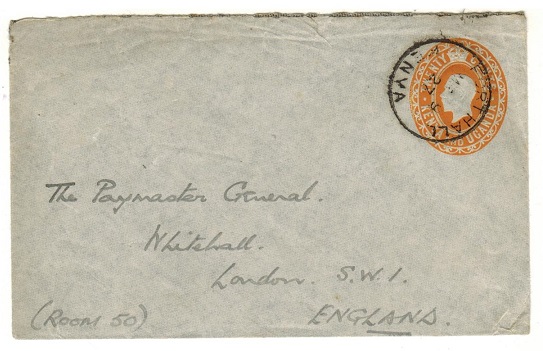 KENYA
KENYA AND UGANDA
The Paymaster General.
Whitehall.
London. S.W.1.
(ROOM 50)
ENGLAND.